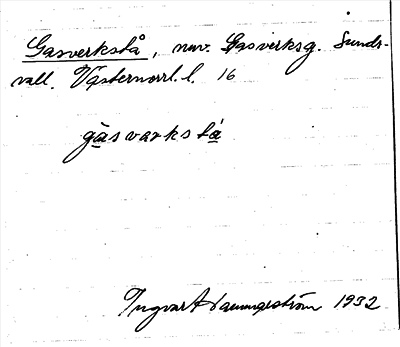 Gasverkstå, nuv. Gasverksg. Sunds-
vall. Västernorrl. l. 16
gasvarkstå
Ingvar 1932